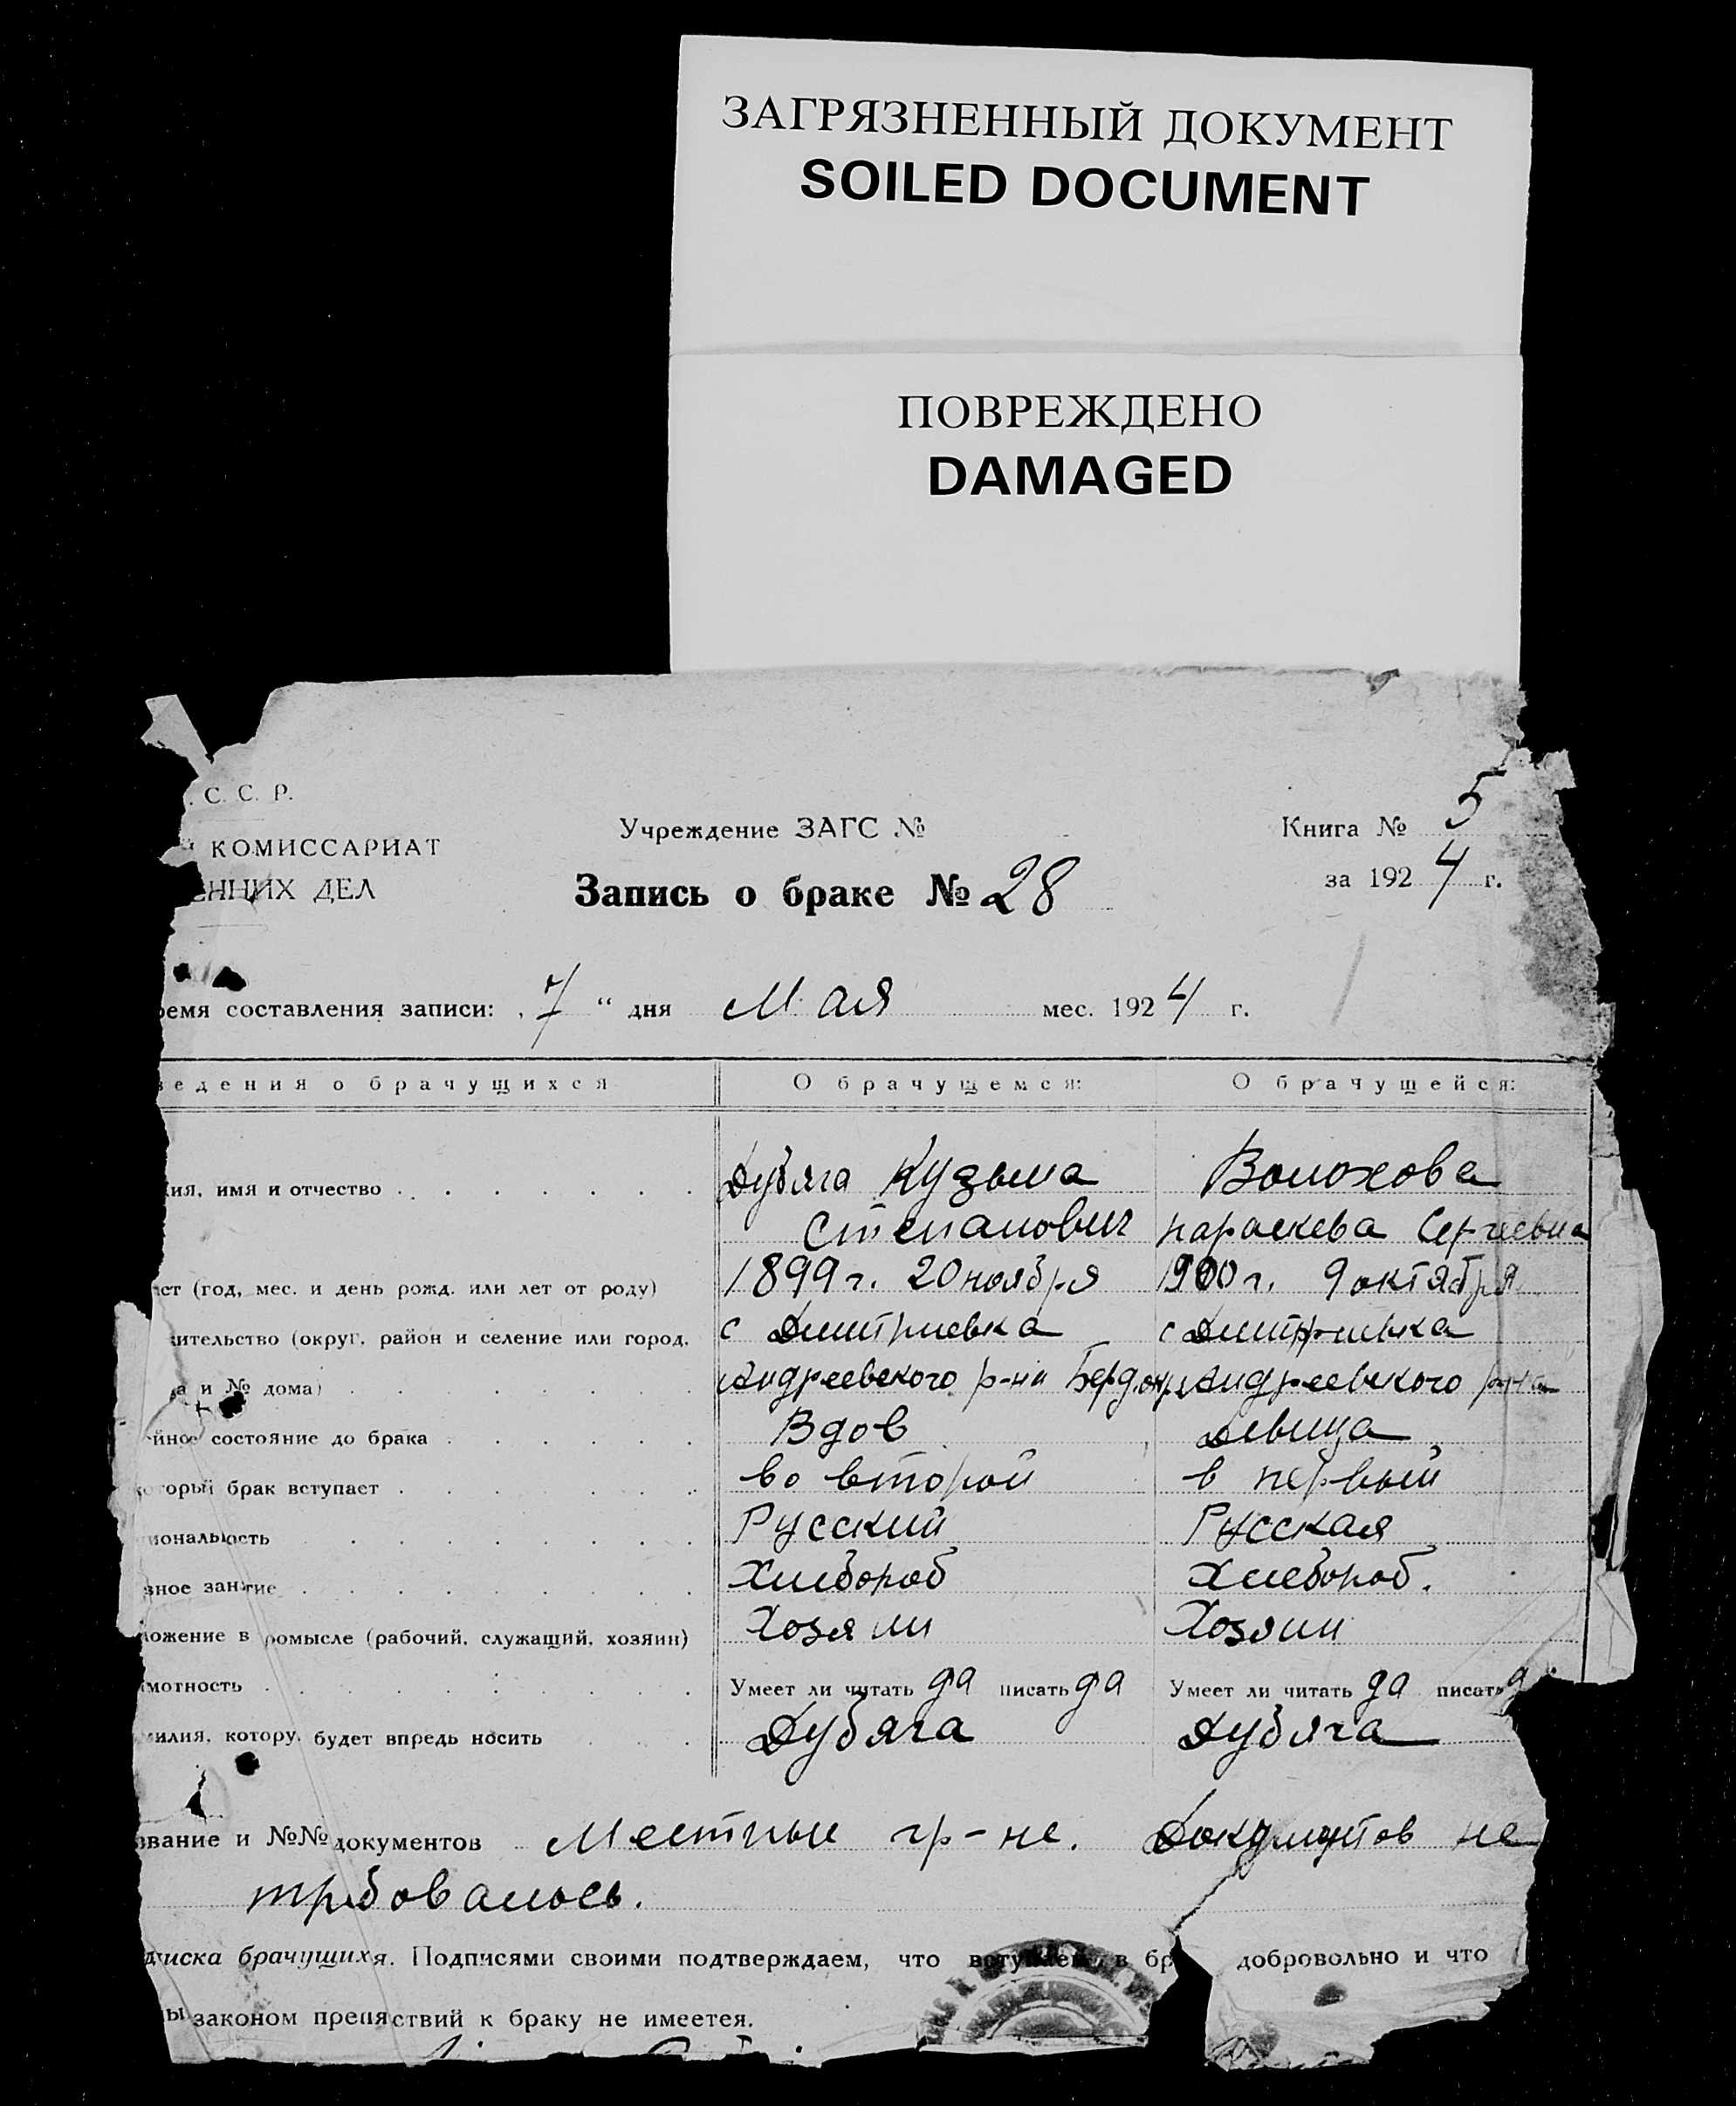 ЗАГРЯЗНЕННЫЙ ДОКУМЕНТ
SOILED DOCUMENT
ПОВРЕЖДЕНО
DAMAGED
. С. С. Р.
КОМИССАРИАТ
ЕННИХ ДЕЛ
Учреждение ЗАГС №
Книга № 5
за 1924 г.
Запись о браке № 28
ремя составления записи: „ 7 “ дня Мая мес. 1924 г.
ведения о брачущихся О брачущемся: О брачущейся:
ия, имя и отчество Дубяга Кузьма Волохова
Степанович Параскева Сергеевна
ст (год, мес. и день рожд. или лет от роду) 1899 г. 20 ноября 1900 г. 9 октября
ительство (округ, район и селение или город, с Дмитриевка с Дмитриевка
а и № дома) Андреевского р-на Берд. окр. Андреевского р-на
йное состояние до брака Вдов девица
который брак вступает во второй в первый
иональность Русский Русская
вное занятие Хлебороб Хлебороб.
ложение в ромысле (рабочий, служащий, хозяин) Хозяин Хозяин
мотность Умеет ли читать да писать да Умеет ли читать да писать д
милия, котору. будет впредь носить Дубяга Дубяга
звание и №№ документов Местные гр-не. Документов не
требовалось.
диска брачущихя. Подписями своими подтверждаем, что вступаем в бр добровольно и что
ны законом препяствий к браку не имеется.